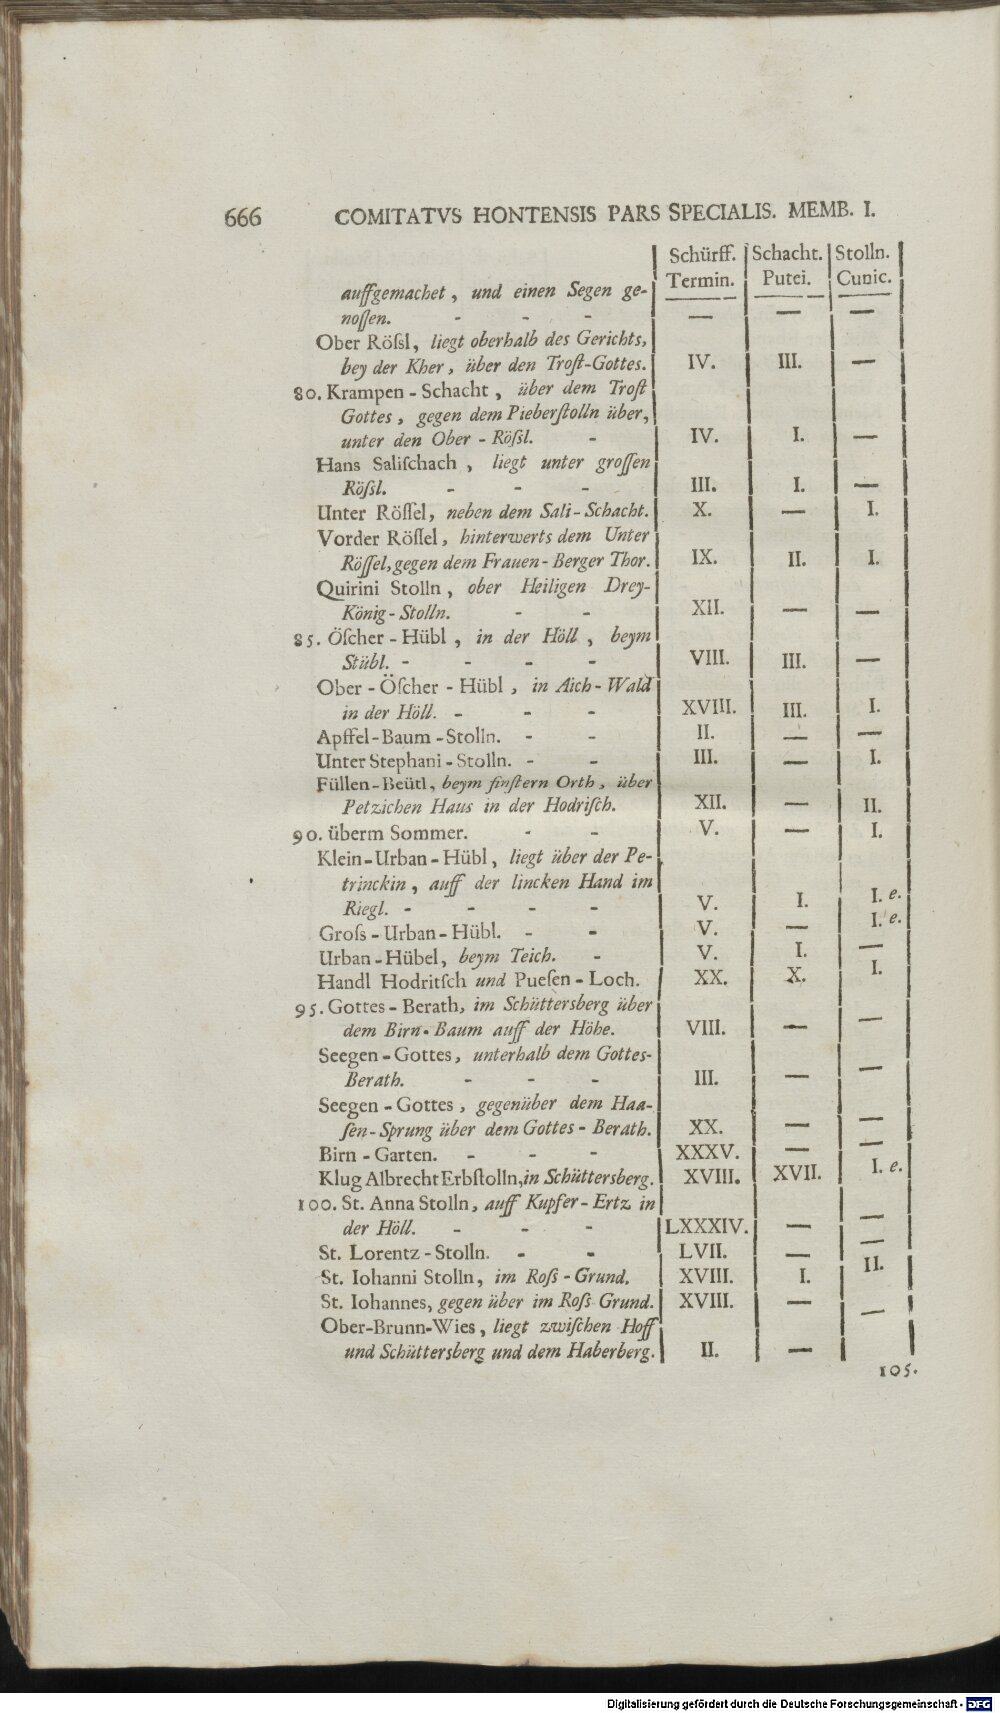 666 COMITATVS HONTENSIS PARS SPECIALIS. MEMB. I.
Schürff. Schacht. Stolln.
Termin. Putei. Cunic.
auffgemachet, und einen Segen ge-
noſſen. - - - — — —
Ober Röſsl, liegt oberhalb des Gerichts,
bey der Kher, über den Troſt-Gottes. IV. III. —
80. Krampen-Schacht, über dem Troſt
Gottes, gegen dem Pieberſtolln über,
unter den Ober-Röſsl. - IV. I. —
Hans Saliſchach, liegt unter groſſen
Röſsl. - - - III. I. —
Unter Röſſel, neben dem Sali-Schacht. X. — I.
Vorder Röſſel, hinterwerts dem Unter
Röſſel, gegen dem Frauen-Berger Thor. IX. II. I.
Quirini Stolln, ober Heiligen Drey-
König-Stolln. - - XII. — —
85. Öſcher-Hübl, in der Höll, beym
Stübl. - - - - VIII. III. —
Ober-Öſcher-Hübl, in Aich-Wald
in der Höll. - - - XVIII. III. I.
Apffel-Baum-Stolln. - - II. — —
Unter Stephani-Stolln. - - III. — I.
Füllen-Beütl, beym finſtern Orth, über
Petzichen Haus in der Hodriſch. XII. — II.
90. überm Sommer. - - V. — I.
Klein-Urban-Hübl, liegt über der Pe-
trinckin, auff der lincken Hand im
Riegl. - - - - V. I. I. e.
Groſs-Urban-Hübl. - - V. — I. e.
Urban-Hübel, beym Teich. - V. I. —
Handl Hodritſch und Pueſen-Loch. XX. X. I.
95. Gottes-Berath, im Schüttersberg über
dem Birn-Baum auff der Höhe. VIII. — —
Seegen-Gottes, unterhalb dem Gottes-
Berath. - - - III. — —
Seegen-Gottes, gegenüber dem Haa-
ſen-Sprung über dem Gottes-Berath. XX. — —
Birn-Garten. - - - XXXV. — —
Klug Albrecht Erbſtolln, in Schüttersberg. XVIII. XVII. I. e.
100. St. Anna Stolln, auff Kupfer-Ertz in
der Höll. - - - LXXXIV. — —
St. Lorentz-Stolln. - - LVII. — —
St. Iohanni Stolln, im Roſs-Grund. XVIII. I. II.
St. Iohannes, gegen über im Roſs Grund. XVIII. — —
Ober-Brunn-Wies, liegt zwiſchen Hoff
und Schüttersberg und dem Haberberg. II. —
105.
Digitalisierung gefördert durch die Deutsche Forschungsgemeinschaft - DFG